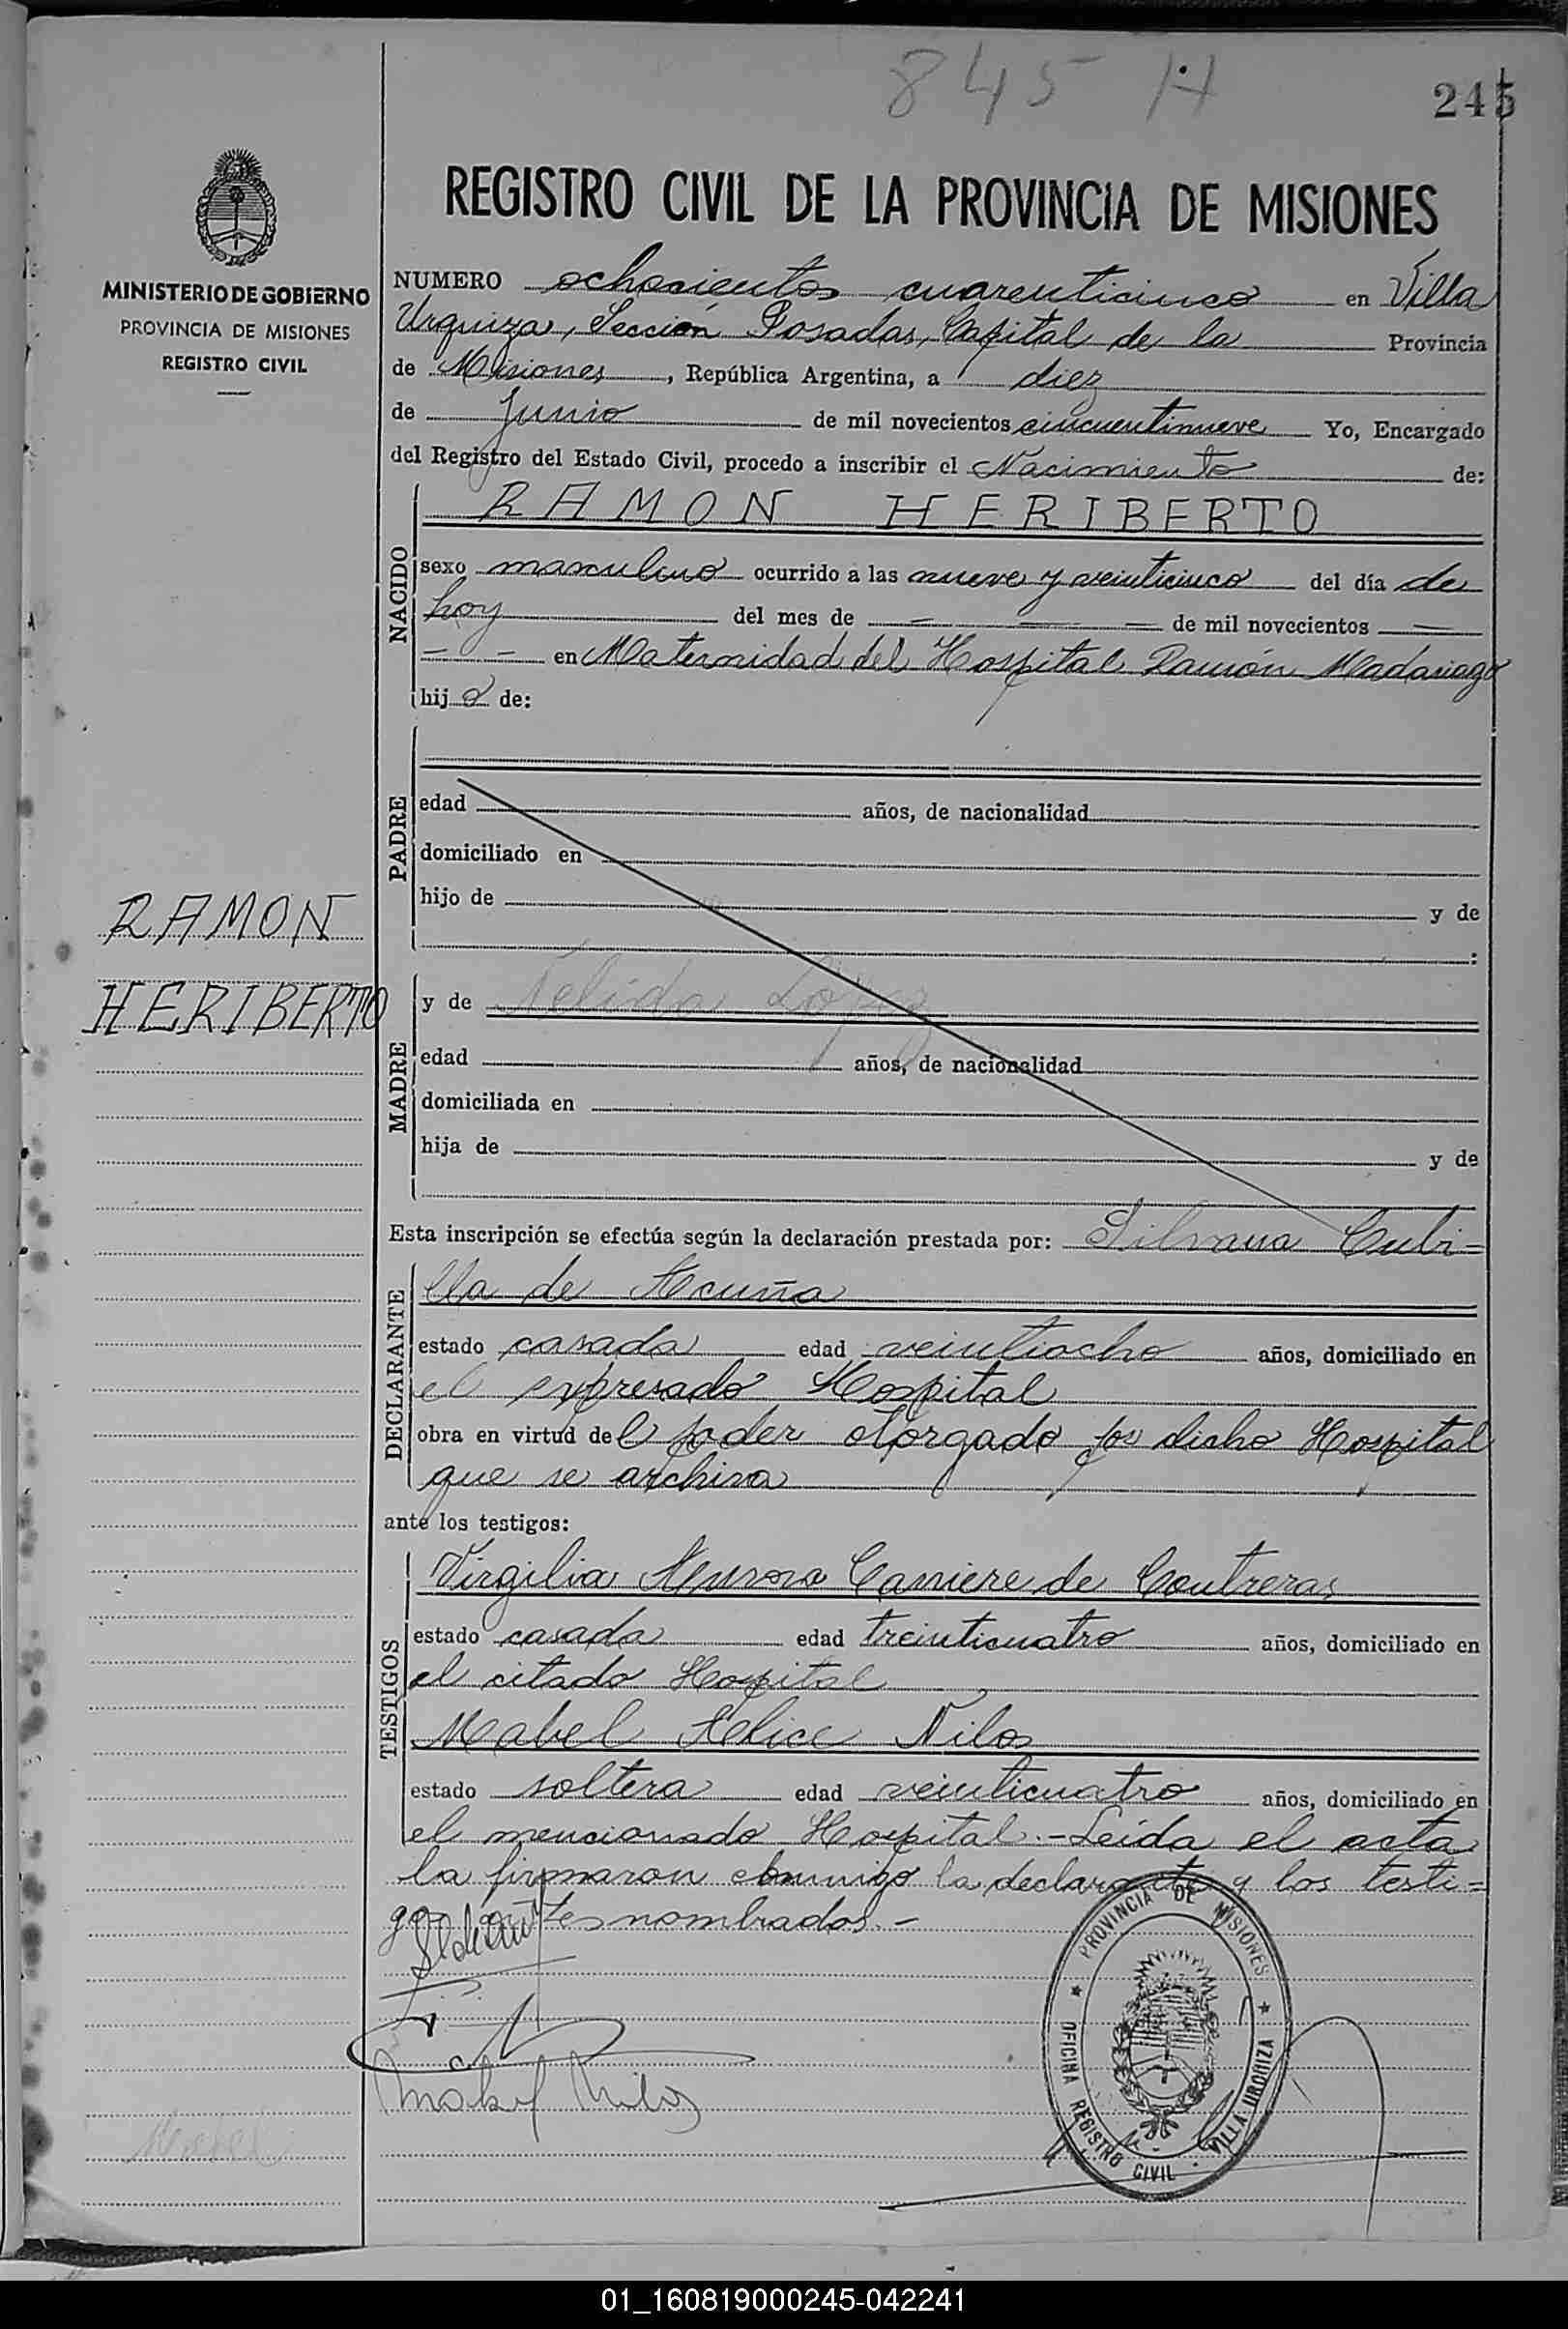 845 H
245
REGISTRO CIVIL DE LA PROVINCIA DE MISIONES
MINISTERIO DE GOBIERNO
PROVINCIA DE MISIONES
REGISTRO CIVIL
NUMERO ochocientos cuarenticinco en Villa
Urquiza, Sección Posadas, Capital de la Provincia
de Misiones, República Argentina, a diez
de Junio de mil novecientos cincuentinueve Yo, Encargado
del Registro del Estado Civil, procedo a inscribir el Nacimiento de:
RAMON HERIBERTO
NACIDO
sexo masculino ocurrido a las nueve y veinticinco del día de
hoy del mes de — — — de mil novecientos —
— — en Maternidad del Hospital Ramón Madariaga
hijo de:
PADRE
edad años, de nacionalidad
domiciliado en
hijo de y de
:
RAMON
HERIBERTO
MADRE
y de Nelida López
edad años, de nacionalidad
domiciliada en
hija de y de
Esta inscripción se efectúa según la declaración prestada por: Silvana Cubi=
DECLARANTE
lla de Acuña
estado casada edad veintiocho años, domiciliado en
el expresado Hospital
obra en virtud del poder otorgado por dicho Hospital
que se archiva
ante los testigos:
TESTIGOS
Virgilia Carriere de Contreras
estado casada edad treinticuatro años, domiciliado en
el citado Hospital
Mabel Alice Nilos
estado soltera edad veinticuatro años, domiciliado en
el mencionado Hospital.- Leída el acta
la firmaron conmigo la declarante y los testi=
gos antes nombrados.-
Mabel Nilos
PROVINCIA DE MISIONES
OFICINA REGISTRO CIVIL · VILLA URQUIZA
Mabel
01_160819000245-042241